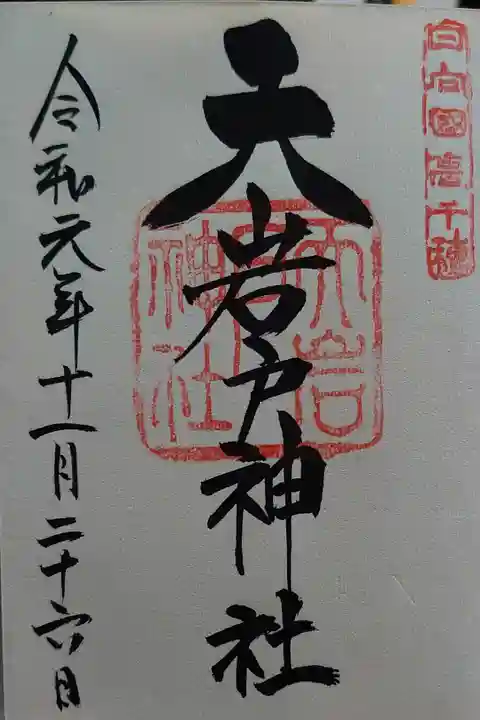 日向國高千穂
天岩戸神社
天岩戸神社
令和元年十一月二十六日